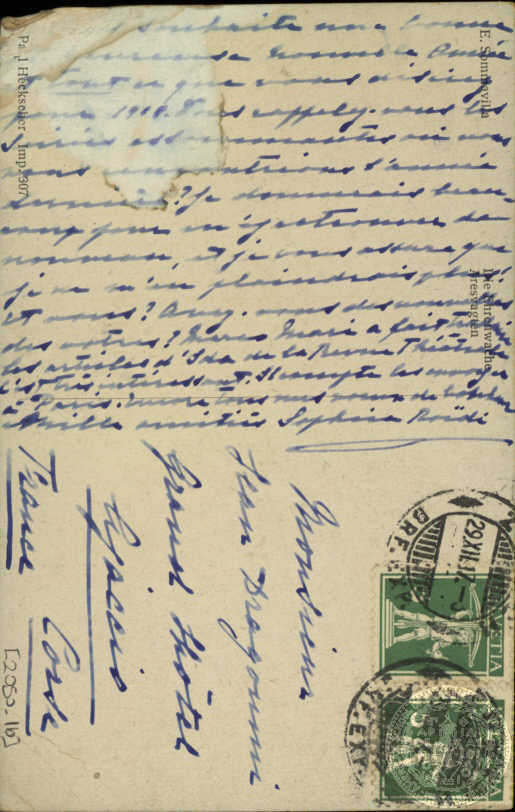 souhaite une bonne
heureuse nouvelle Année
et tout ce que vous désirez
pour 1918. Vous rappelez-vous les
soirées où nous
nous rencontrions l'année
dernière? Je donnerais beau-
coup pour m'y retrouver de
nouveau, et je vous assure que
je ne m'en plaindrais plus!
et vous? Avez-vous des nouvelles
des votres? mon Mari a fait
les articles d'Ida de la Revue
c'est très intéressant. Il compte les
à Paris. Encore tous nos voeux de bonheur
et mille amitiés Sophie
E. Sommavilla
Die Ehrenwache
Æresvagten
Paul Heckscher Imp. 307
Monsieur
Jean Dragoumi
Grand Hôtel
Ajaccio
Corse
France
29.XII.17.-3
BRF. EXP.
HELVETIA
BRF. EXP.
[2050.16]